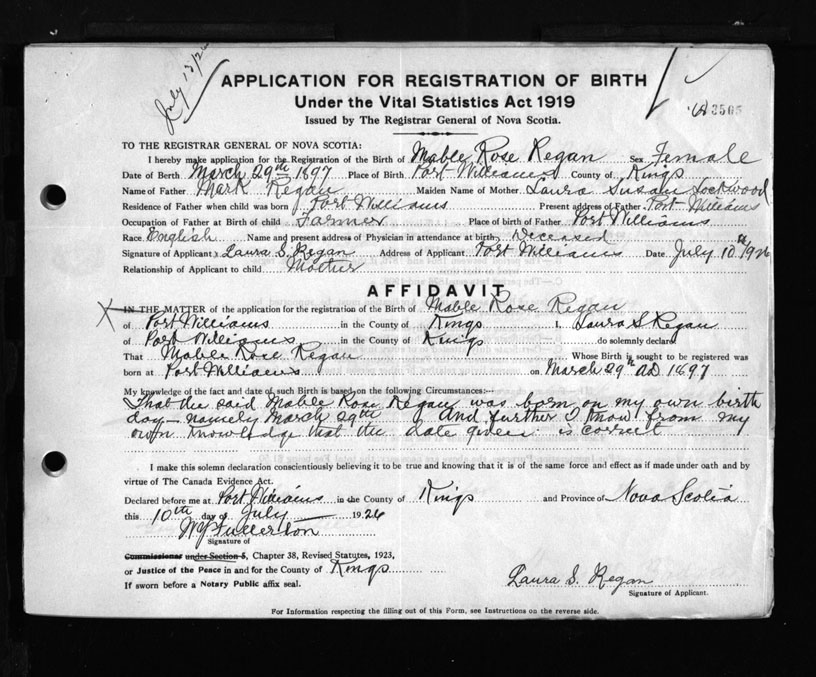 July 13/26
APPLICATION FOR REGISTRATION OF BIRTH
Under the Vital Statistics Act 1919
Issued by The Registrar General of Nova Scotia.
TO THE REGISTRAR GENERAL OF NOVA SCOTIA:
I hereby make application for the Registration of the Birth of Mable Rose Regan Sex Female
Date of Birth March 29th 1897 Place of Birth Port Williams County of Kings
Name of Father Mark Regan Maiden Name of Mother Laura Susan Lockwood
Residence of Father when child was born Port Williams Present address of Father Port Williams
Occupation of Father at Birth of child Farmer Place of birth of Father Port Williams
Race English Name and present address of Physician in attendance at birth Deceased
Signature of Applicant Laura S. Regan Address of Applicant Port Williams Date July 10th 1926
Relationship of Applicant to child Mother
AFFIDAVIT
IN THE MATTER of the application for the registration of the Birth of Mable Rose Regan
of Port Williams in the County of Kings I, Laura S Regan
of Port Williams in the County of Kings do solemnly declare
That Mable Rose Regan Whose Birth is sought to be registered was
born at Port Williams on March 29th AD 1897
My knowledge of the fact and date of such Birth is based on the following Circumstances:—
That the said Mable Rose Regan was born on my own birth
day – namely March 29th and further I know from my
own knowledge that the date given is correct
I make this solemn declaration conscientiously believing it to be true and knowing that it is of the same force and effect as if made under oath and by
virtue of The Canada Evidence Act.
Declared before me at Port Williams in the County of Kings and Province of Nova Scotia
this 10th day of July 1926
W Y Fullerton
Signature of
Commissioner under Section 5, Chapter 38, Revised Statutes, 1923,
or Justice of the Peace in and for the County of Kings
If sworn before a Notary Public affix seal.
Laura S. Regan
Signature of Applicant.
For Information respecting the filling out of this Form, see Instructions on the reverse side.